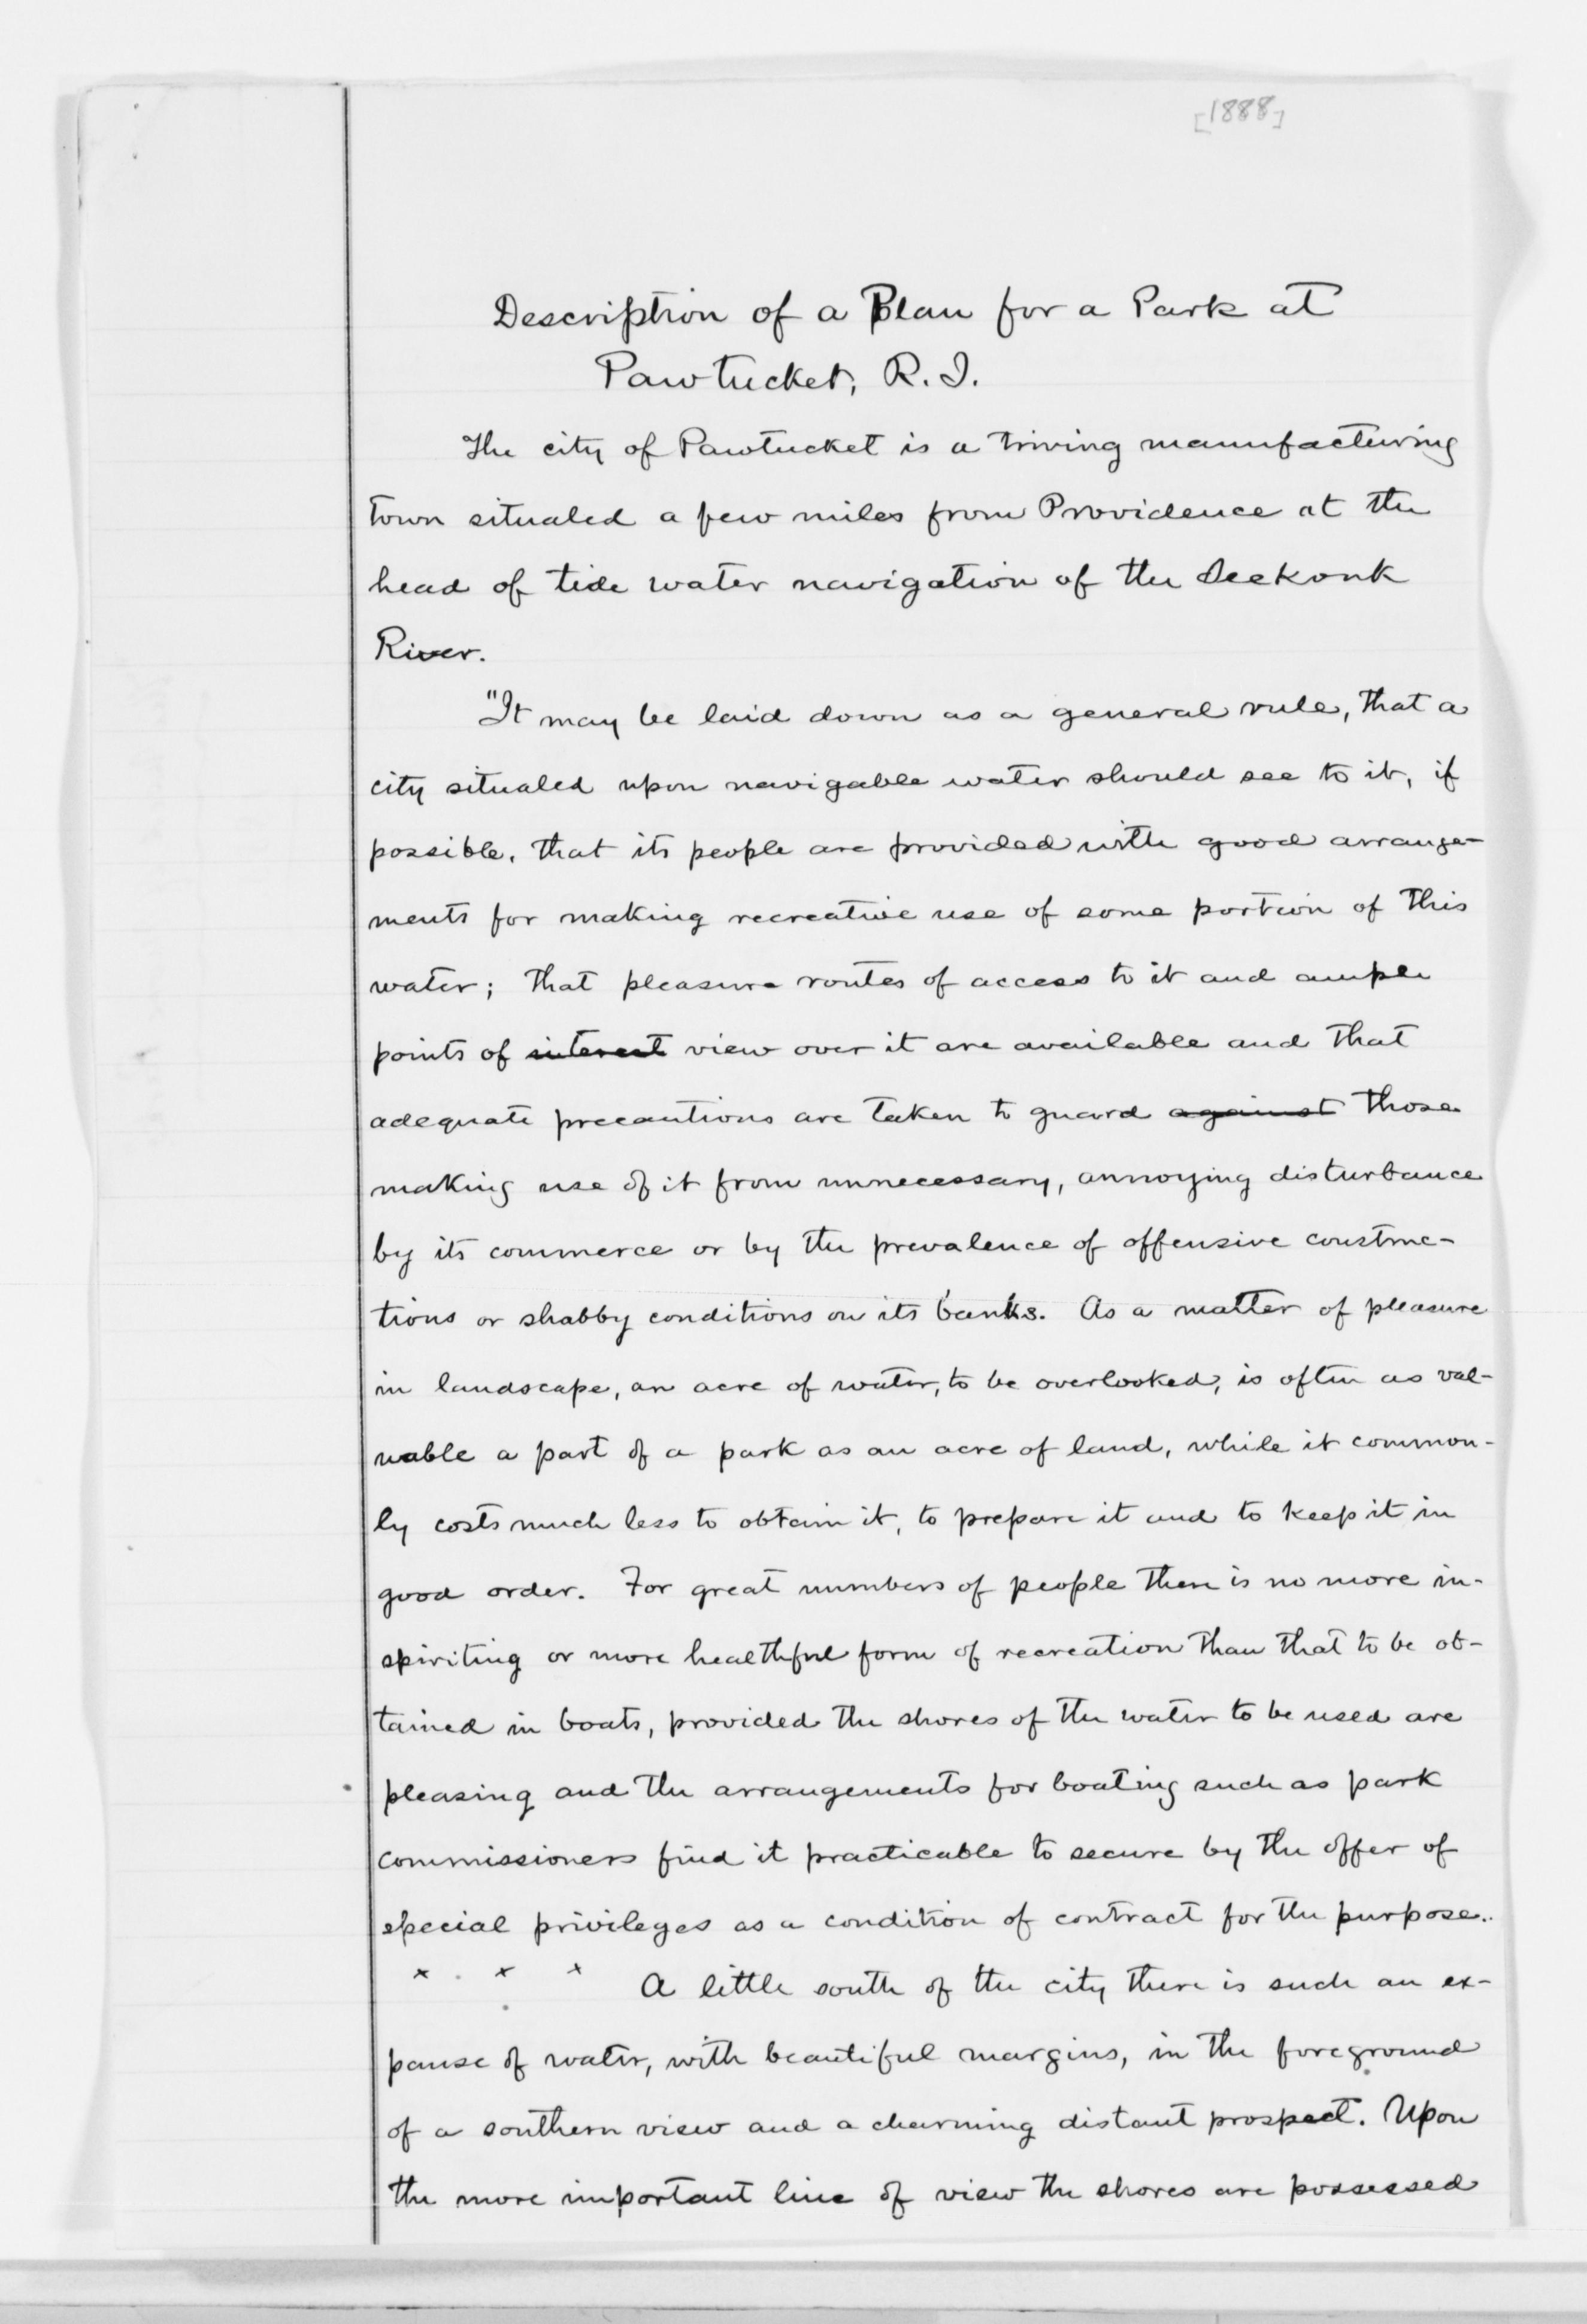 [1888]
Description of a Plan for a Park at
Pawtucket, R.I.
The city of Pawtucket is a triving manufacturing
town situated a few miles from Providence at the
head of tide water navigation of the Seekonk
River.
"It may be laid down as a general rule, that a
city situated upon navigable water should see to it, if
possible, that its people are provided with good arrange-
ments for making recreative use of some portion of this
water; that pleasure routes of access to it and ample
points of interest view over it are available and that
adequate precautions are taken to guard against those
making use of it from unnecessary, annoying disturbance
by its commerce or by the prevalence of offensive construc-
tions or shabby conditions on its banks. As a matter of pleasure
in landscape, an acre of water, to be overlooked, is often as val-
uable a part of a park as an acre of land, while it common-
ly costs much less to obtain it, to prepare it and to keep it in
good order. For great numbers of people there is no more in-
spiriting or more healthful form of recreation than that to be ob-
tained in boats, provided the shores of the water to be used are
pleasing and the arrangements for boating such as park
commissioners find it practicable to secure by the offer of
special privileges as a condition of contract for the purpose..
x x x A little south of the city there is such an ex-
panse of water, with beautiful margins, in the foreground
of a southern view and a charming distant prospect. Upon
the more important line of view the shores are possessed